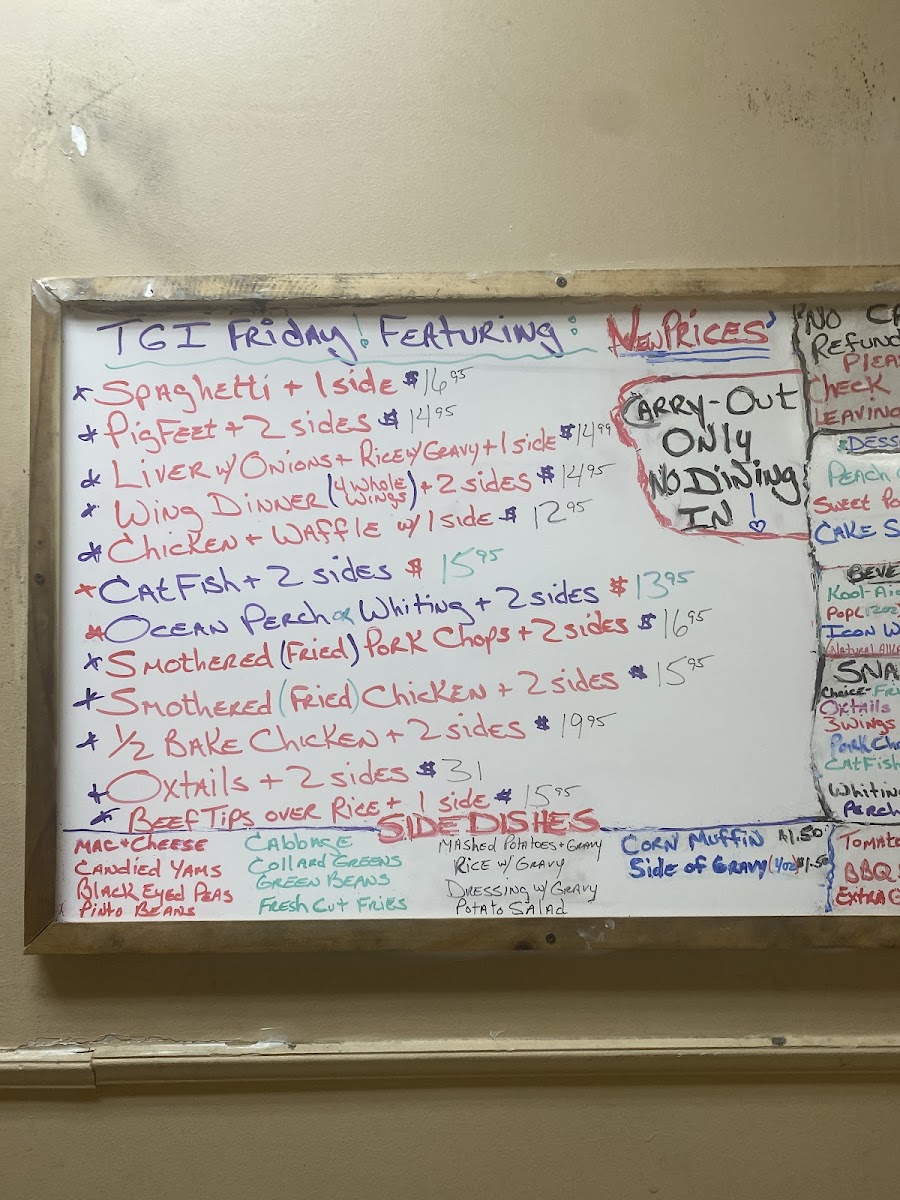 TGI Friday! Featuring:
New Prices'
* Spaghetti + 1 side $16.95
* Pig Feet + 2 sides $14.95
* Liver w/ Onions + Rice w/ Gravy + 1 side $14.99
* Wing Dinner (4 whole wings) + 2 sides $14.95
* Chicken + Waffle w/ 1 side $12.95
* CatFish + 2 sides $15.95
* Ocean Perch or Whiting + 2 sides $13.95
* Smothered (Fried) Pork Chops + 2 sides $16.95
* Smothered (Fried) Chicken + 2 sides $15.95
* 1/2 Bake Chicken + 2 sides $19.95
* Oxtails + 2 sides $31
* Beef Tips over Rice + 1 side $15.95
Carry-Out
Only
No Dining
In!
Side Dishes
Mac + Cheese
Candied Yams
Black Eyed Peas
Pinto Beans
Cabbage
Collard Greens
Green Beans
Fresh Cut Fries
Mashed Potatoes + Gravy
Rice w/ Gravy
Dressing w/ Gravy
Potato Salad
Corn Muffin $1.50
Side of Gravy (4oz) $1.50
No
Refund
Check
Leaving
Peach
Sweet
Cake
Kool-Aid
Pop (12oz)
Icon
Natural
Choice-
Oxtails
3 Wings
Pork
CatFish
Whiting
Perch
BBQ
Extra